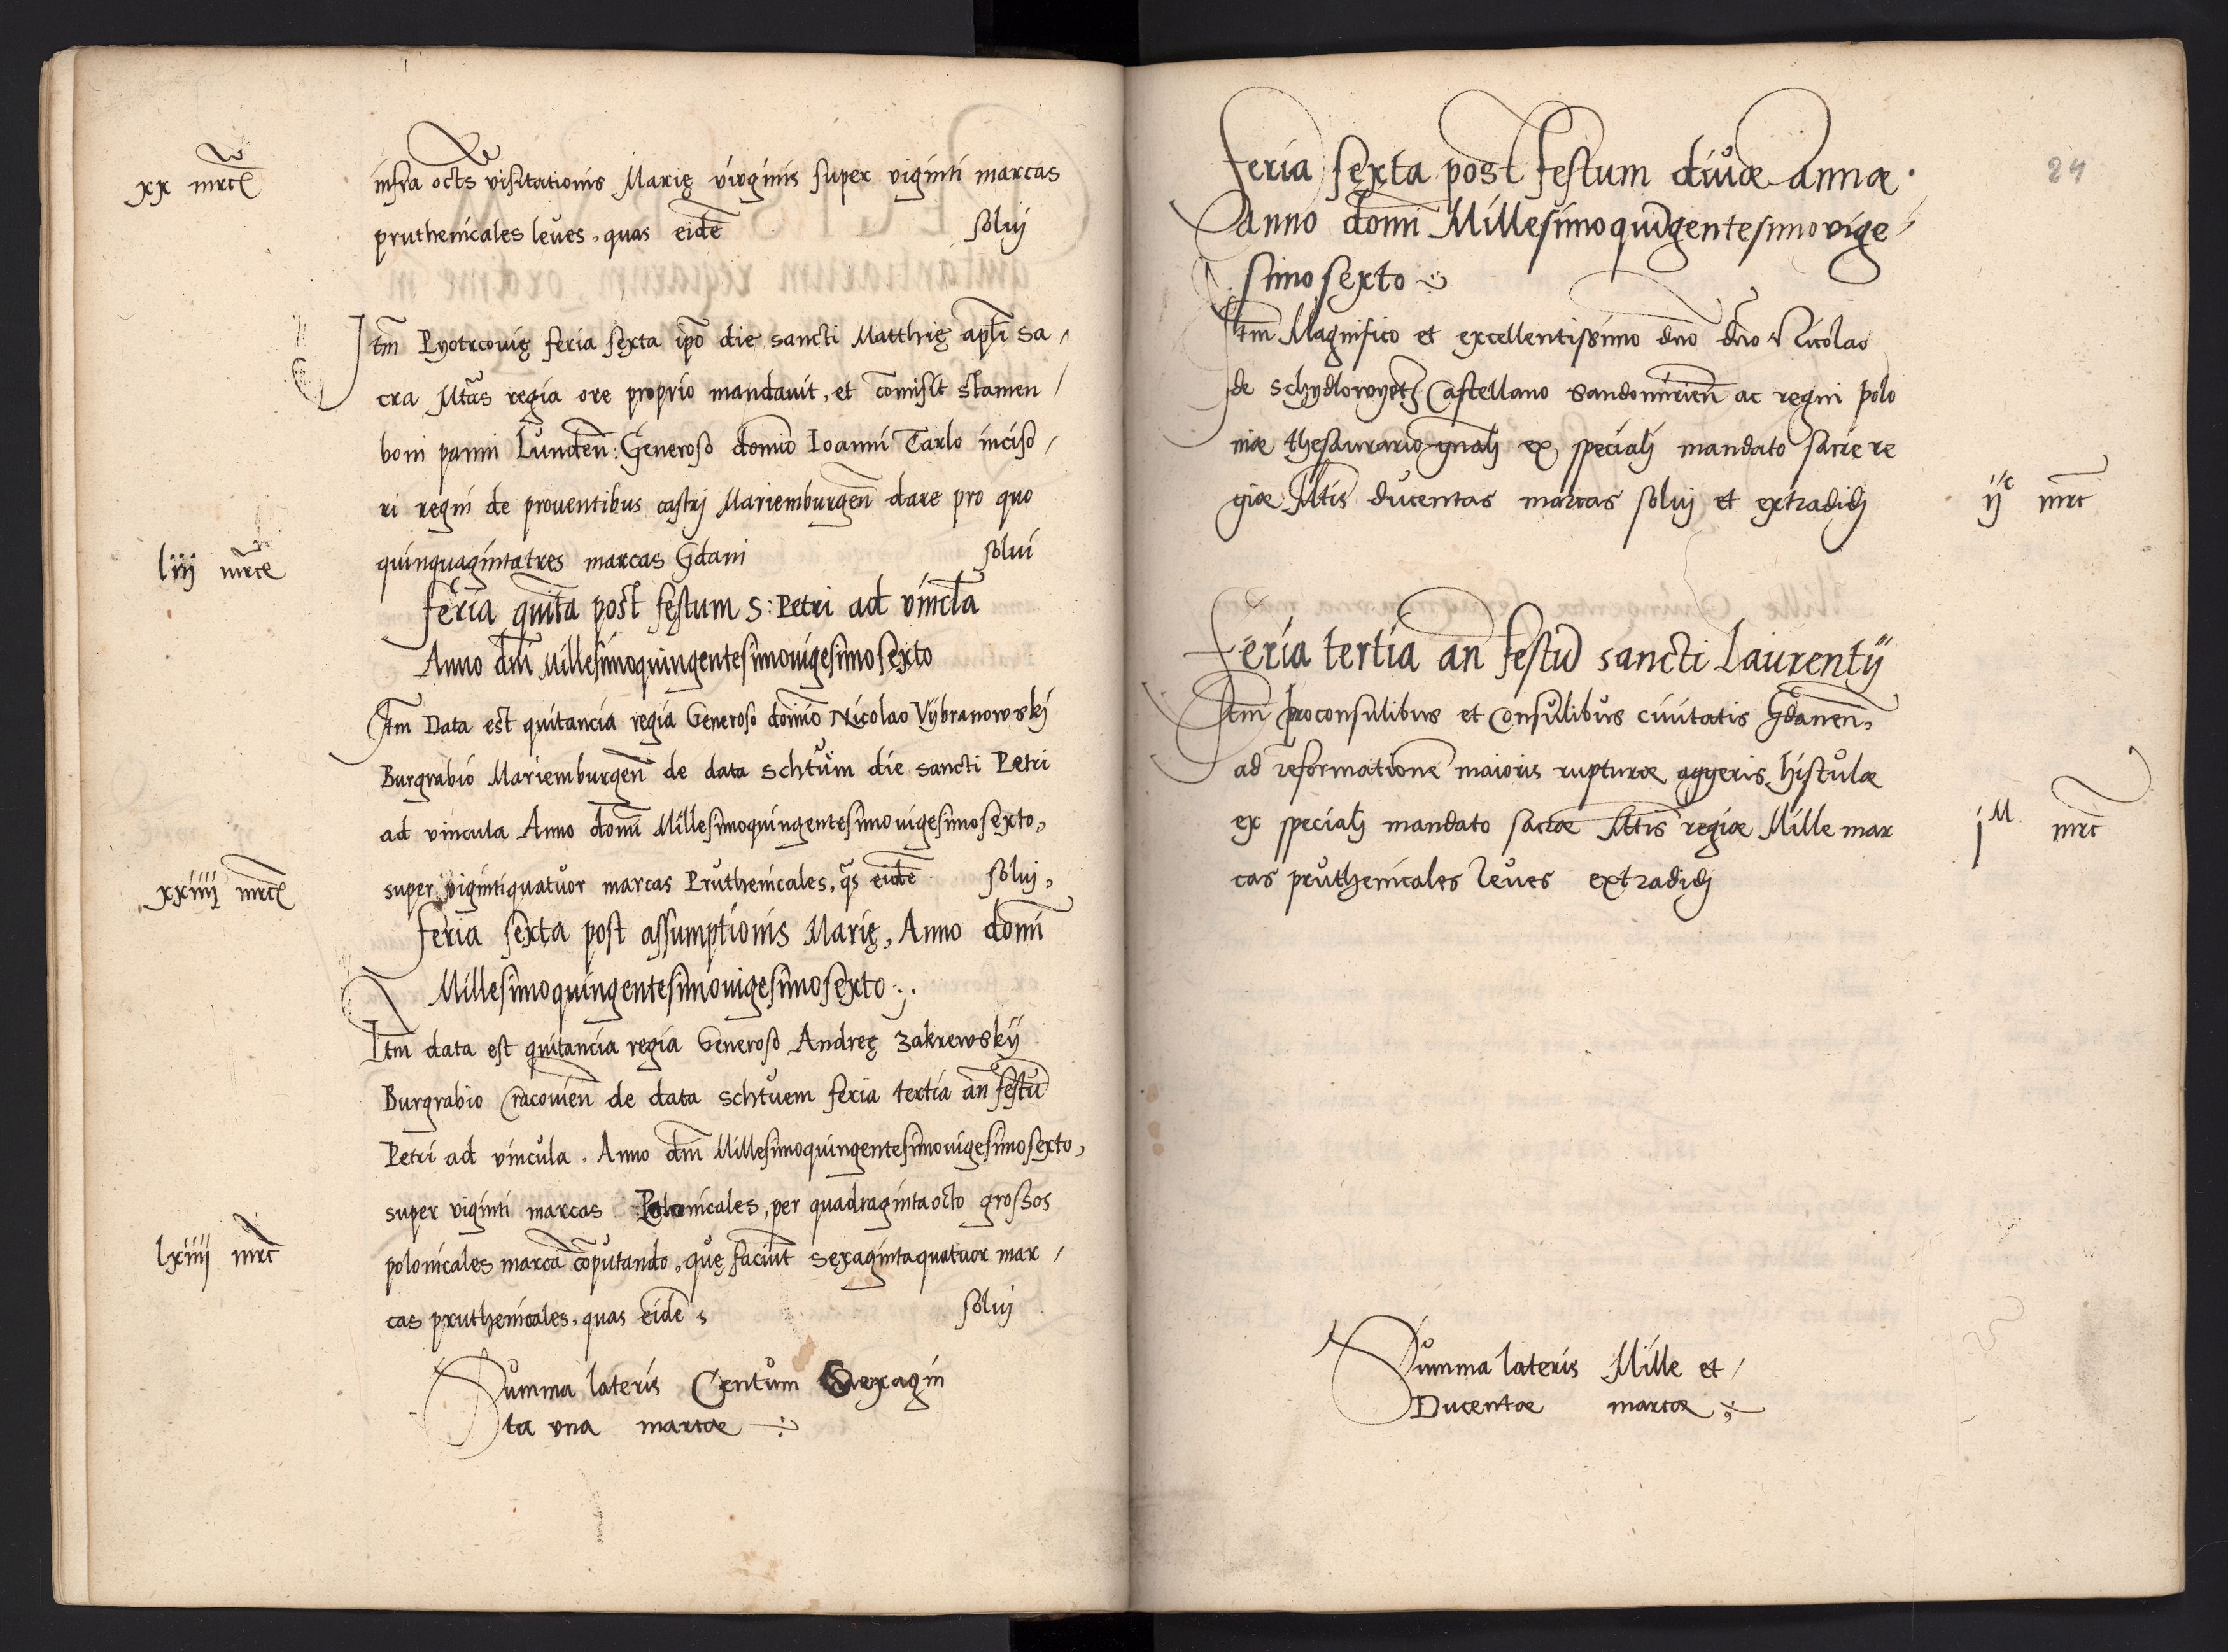 xx mrc̃
infra oct̃s visitationis Marię virginis super viginti marcas
pruthenicales leues, quas eidẽ solvj
Itm̃ Pyotrcovię feria sexta ip̃o die sancti Matthię apl̃i sa /
cra Mtãs regia ore proprio mandauit, et com̃isit stamen /
boni panni Lunden̄: Generoso domĩo Ioanni Tarlo inciso /
ri regni de prouentibus castrj Mariemburgen̄ dare pro quo
liij mrce
quinquagintatres marcas Gdani solui
feria quĩta post festum S: Petri ad vincl̃a
Anno dm̃i Millesimoquingentesimouigesimosexto
Itm̃ Data est quitancia regia Generoso domĩo Nicolao Vÿbranowskj
Burgrabio Mariemburgen̄ de data schtům die sancti Petri
ad vincula Anno domĩ Millesimoquingentesimouigesimosexto,
xxiiij mrc̃
super vigintiquatuor marcas Pruthenicales, q̃s eidẽ solvj,
feria sexta post assumptionis Marię, Anno domĩ
Millesimoquingentesimouigesimosexto
Itm̃ data est quitancia regia Generoso Andreę Zakrewskÿ
Burgrabio Cracouien̄ de data schtuem feria tertia an̄ festũ
Petri ad vincula. Anno dm̃i Millesimoquingentesimouigesimosexto,
super viginti marcas Polonicales, per quadragintaocto grossos
lxiiij mrc̃
polonicales marcã cõputando, quę faciũt sexagintaquatuor mar /
cas pruthenicales, quas eidẽ, solvj
Summa lateris Centum Sexagin
ta vna marcæ
24
Feria sexta post festum diuæ annæ.
Anno domĩ Millesimoquingentesimovige /
simosexto
Itm̃ Magnifico et excellentissimo dn̄o dn̄o Nicolao
de schydlowyetz Castellano Sandomirien̄ ac regni polo
niæ thesaurario gn̄alj ex specialj mandato sacre re
giæ Mtis̃ ducentas marcas solvj et extradidj
ijᶜ mrc̃
Feria tertia an̄ festũ sancti Laurentÿ
Itm̃ proconsulibus et Consulibus ciuitatis Gdanen̄,
ad reformationẽ maioris rupturæ aggeris histulæ
ex specialj mandato sacræ Mtis̃ regiæ Mille mar
jᴹ. mrc̃
cas pruthenicales leues extradidj
Summa lateris Mille et /
Ducentæ marcæ